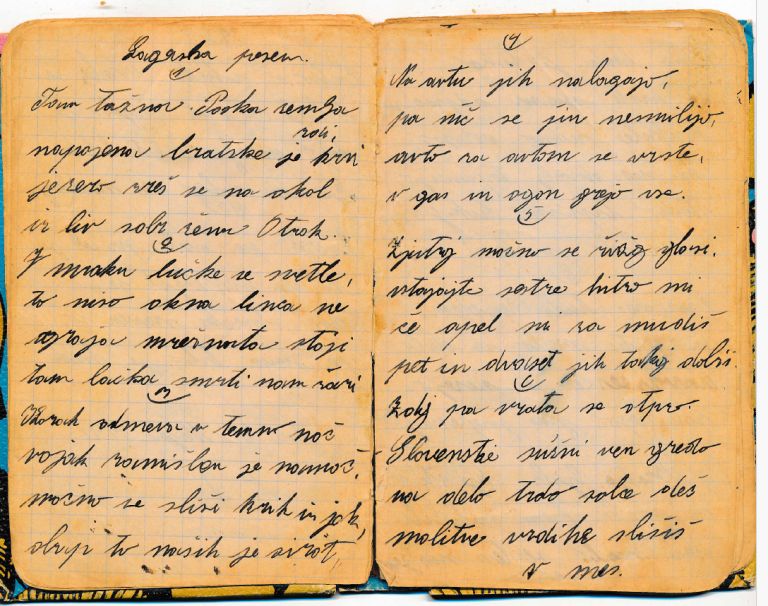 Lagarska pesem.
1
Tam tažna. Poska zemlja
rosi,
napojena bratske je krvi
jezero zreš se na okol
in liv solz žena Otrok.
2
V mraku lučke se svetle,
to niso okna linca ne
ograja mrežnata stoji
tam lačka smrti nam žari
3
Korak odmeva v temno noč
vojak zamišlen je na moč,
močno se sliši krik in jok,
to naših je sirot,
4
Na avtu jih nalagajo,
pa nič se jim nesmilijo,
avto za avtom se vrste,
v gas in ogon grejo vse.
5
Zjutraj močno se glasi,
vstajajte sestre hitro mi
če apel mi zamudiš
pet in dvajset jih takoj dobiš
6
Zdaj pa vrata se otpro.
Slovenske sužni ven gredo
na delo trdo solze deš
molitve vzdihe slišiš
v mes.